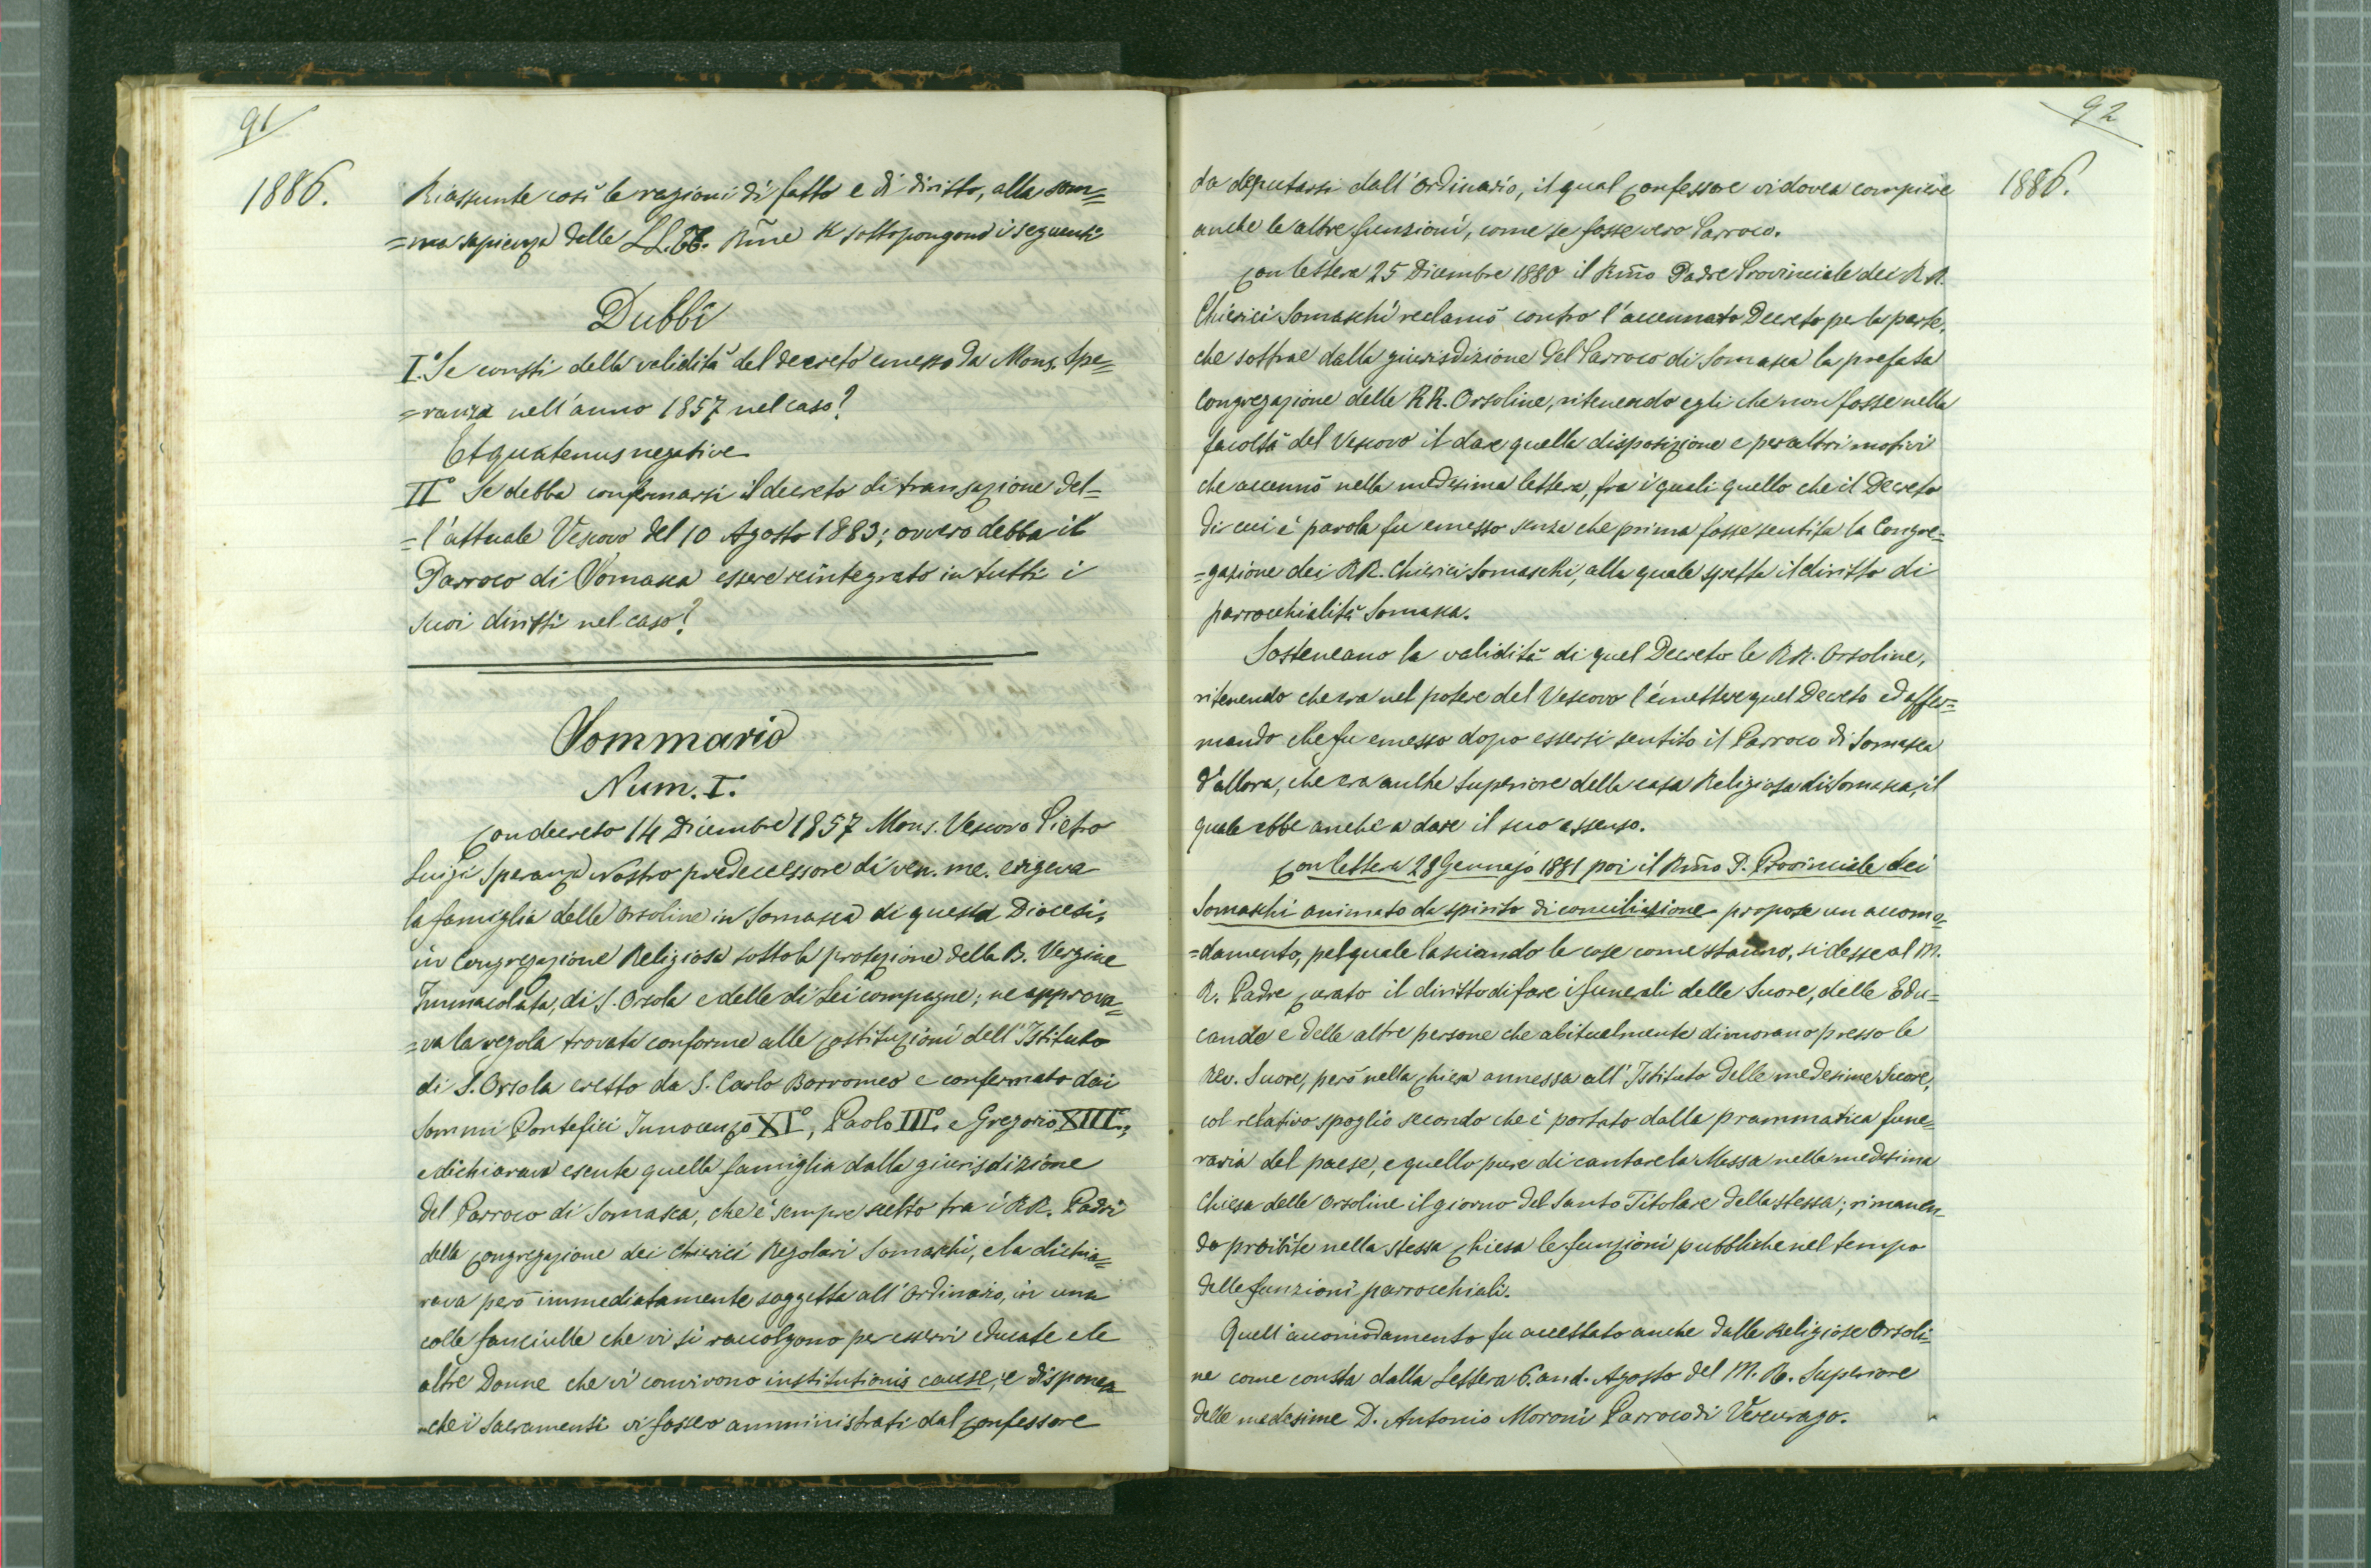 91
1886.
Riassunte così le ragioni di fatto e di diritto, alla som=
=ma sapienza delle LL. EE. Rm̃e si sottopongono i seguenti
Dubbî
I.° Se consti della validità del decreto emesso da Mons. Spe=
=ranza nell'anno 1857 nel caso?
Et quatenus negative
II° Se debba confermarsi il decreto di transazione del=
=l'attuale Vescovo del 10 Agosto 1883; ovvero debba il
Parroco di Somasca essere reintegrato in tutti i
suoi diritti nel caso?
Sommario
Num. I.
Con decreto 14 Dicembre 1857 Mons. Vescovo Pietro
Luigi Speranza Nostro predecessore di ven. me. erigeva
la famiglia delle Orsoline in Somasca di questa Diocesi,
in Congregazione Religiosa sotto la protezione della B. Vergine
Immacolata, di S. Orsola e delle di Lei compagne; ne approva=
=va la regola trovata conforme alle Costituzioni dell'Istituto
di S. Orsola eretto da S. Carlo Borromeo e confermato dai
Sommi Pontefici Innocenzo XI°, Paolo III°. e Gregorio XIII°.,
e dichiarava esente quella famiglia dalla giurisdizione
del Parroco di Somasca, che è sempre scelto tra i RR. Padri
della Congregazione dei Chierici Regolari Somaschi, e la dichia=
rava però immediatamente soggetta all'Ordinario, in una
colle fanciulle che vi si raccolgono per esservi educate e le
altre Donne che vi convivono institutionis causa, e disponea
che i Sacramenti vi fossero amministrati dal Confessore
92
1886.
da deputarsi dall'Ordinario, il qual Confessore vi dovea compiere
anche le altre funzioni, come se fosse vero Parroco.
Con lettera 25 Dicembre 1880 il Rm̃o Padre Provinciale dei RR.
Chierici Somaschi reclamò contro l'accennato Decreto per la parte,
che sottrae dalla giurisdizione del Parroco di Somasca la prefata
Congregazione delle RR. Orsoline, ritenendo egli che non fosse nella
facoltà del Vescovo il dare quella disposizione e per altri motivi
che accennò nella medesima lettera, fra i quali quello che il Decreto
di cui è parola fu emesso senza che prima fosse sentita la Congre=
=gazione dei RR. Chierici Somaschi, alla quale spetta il diritto di
parrocchialità Somasca.
Sosteneano la validità di quel Decreto le RR. Orsoline,
ritenendo che era nel potere del Vescovo l'emettere quel Decreto ed affer=
mando che fu emesso dopo essersi sentito il Parroco di Somasca
d'allora, che era anche Superiore della casa Religiosa di Somasca, il
quale ebbe anche a dare il suo assenso.
Con lettera 28 Gennajo 1881 poi il Rm̃o P. Provinciale dei
Somaschi animato da spirito di conciliazione propose un accomo=
=damento, pel quale lasciando le cose come stanno, si desse al M.
R. Padre Curato il diritto di fare i funerali delle Suore, delle Edu=
cande e delle altre persone che abitualmente dimorano presso le
Rev. Suore, però nella Chiesa annessa all'Istituto delle medesime Suore,
col relativo spoglio secondo che è portato dalla prammatica fune=
raria del paese, e quello pure di cantare la Messa nella medesima
Chiesa delle Orsoline il giorno del Santo Titolare della stessa; rimanen=
do proibite nella stessa Chiesa le funzioni pubbliche nel tempo
delle funzioni parrocchiali.
Quell'accomodamento fu accettato anche dalle Religiose Orsoli=
ne come consta dalla Lettera 6. and. Agosto del M. R. Superiore
delle medesime D. Antonio Moroni Parroco di Vercurago.